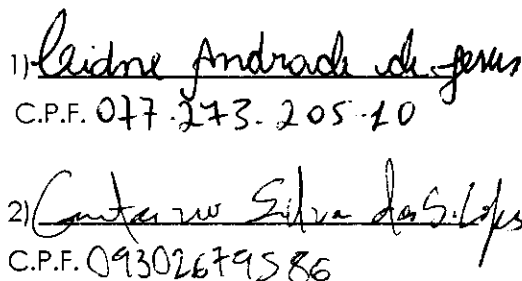 1) Leidne Andrade de Jesus
C.P.F. 077.273.205-10
2) Silva dos S. Lopes
C.P.F. 09302679586